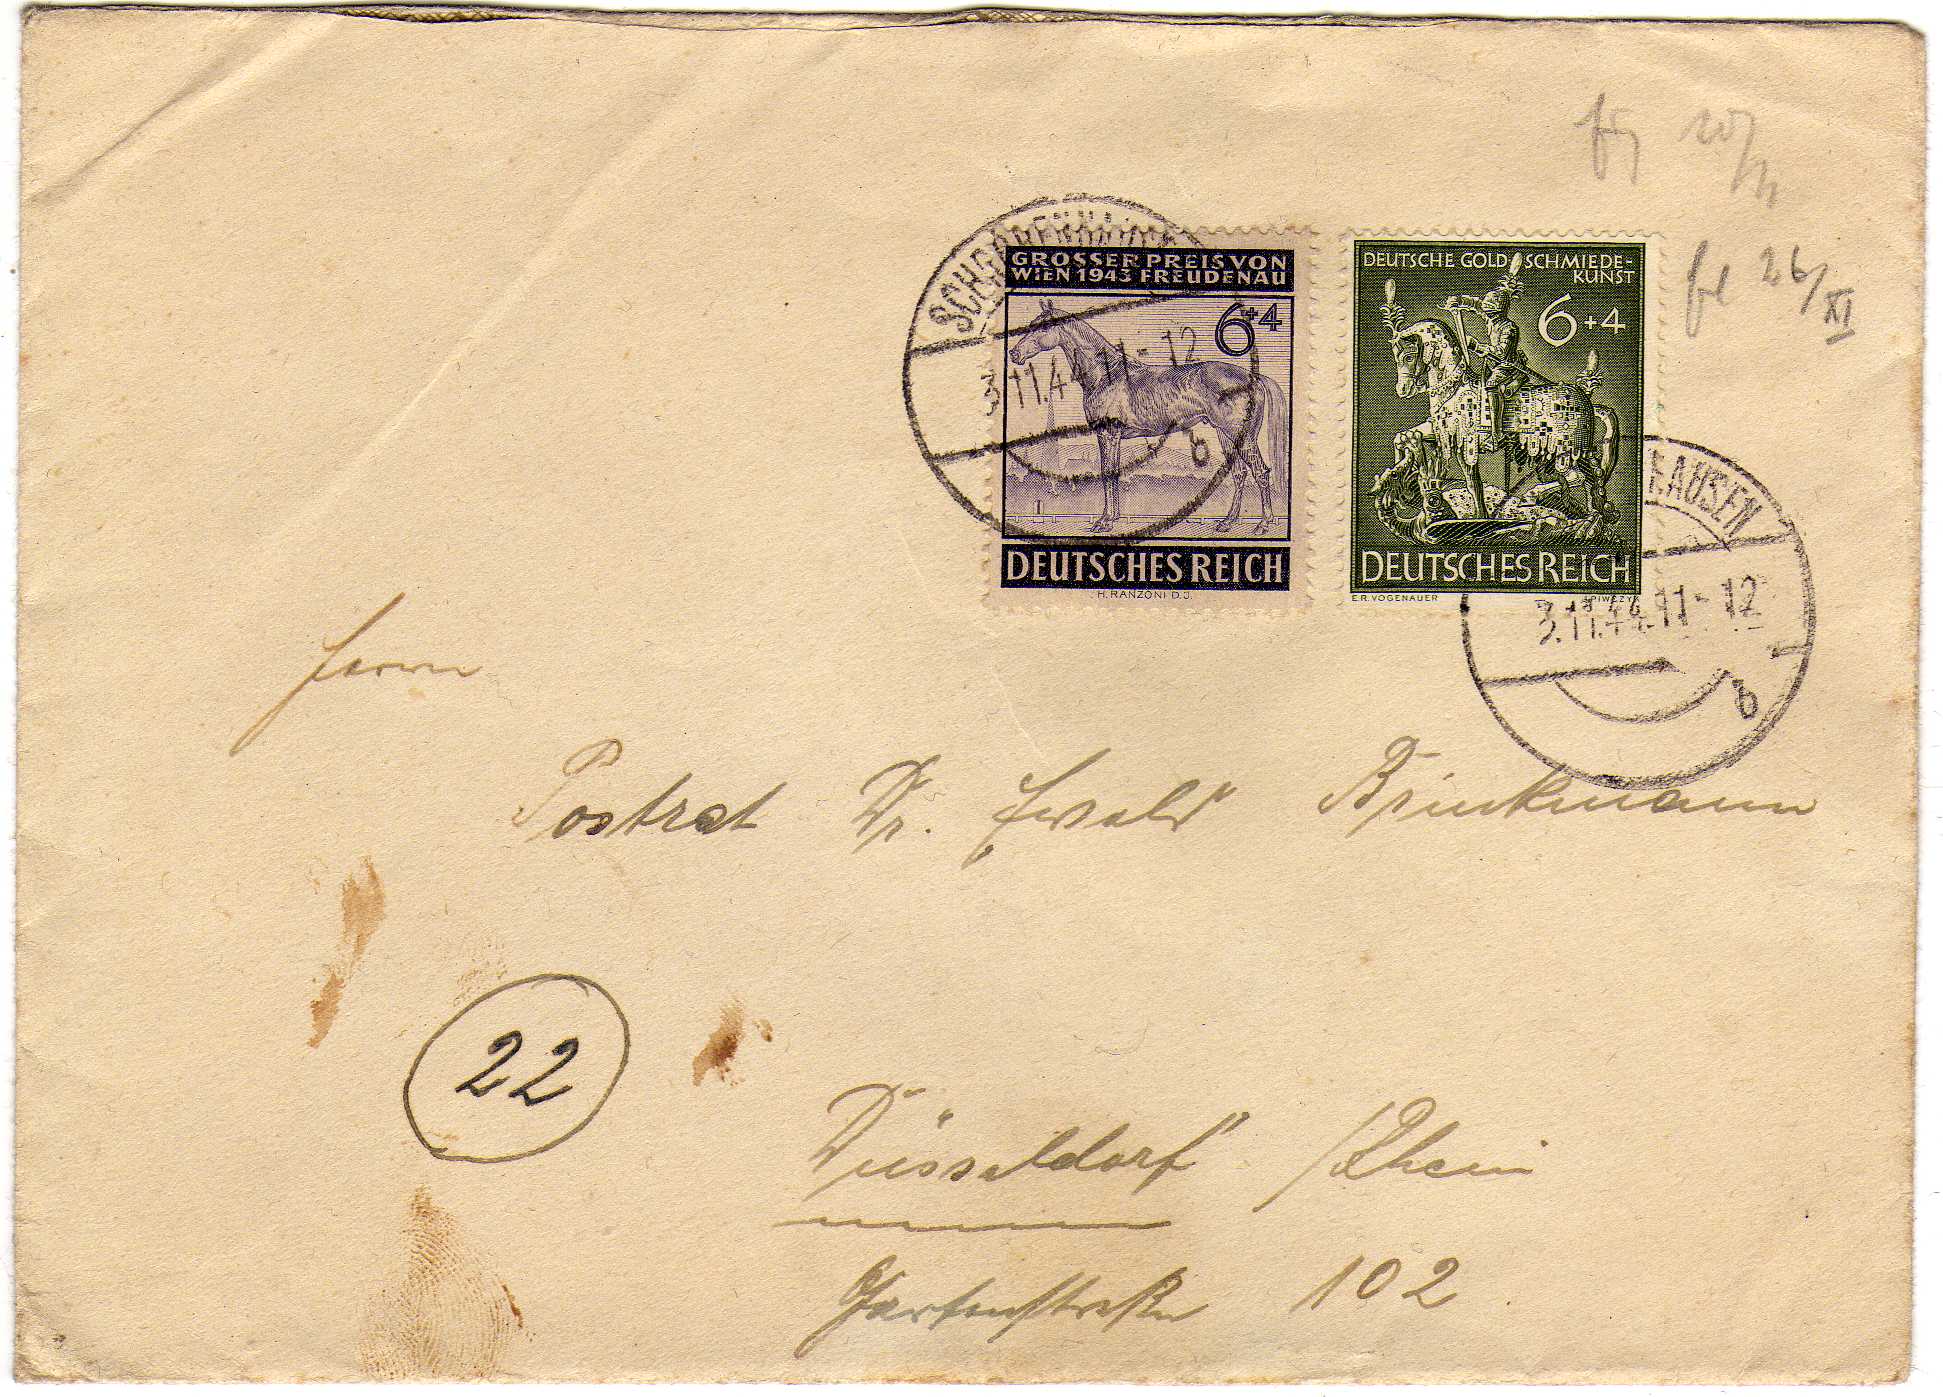 fg 20/11
fe 26/XI
GROSSER PREIS VON
WIEN 1943 FREUDENAU
6+4
DEUTSCHES REICH
H. RANZONI D.J.
DEUTSCHE GOLDSCHMIEDE-
KUNST
6+4
DEUTSCHES REICH
E.R. VOGENAUER
3.11.44.11-12
b
3.11.44.11-12
b
Herrn
Postrat Dr. Ewald Brinkmann
22
Düsseldorf /Rhein
Gartenstraße 102